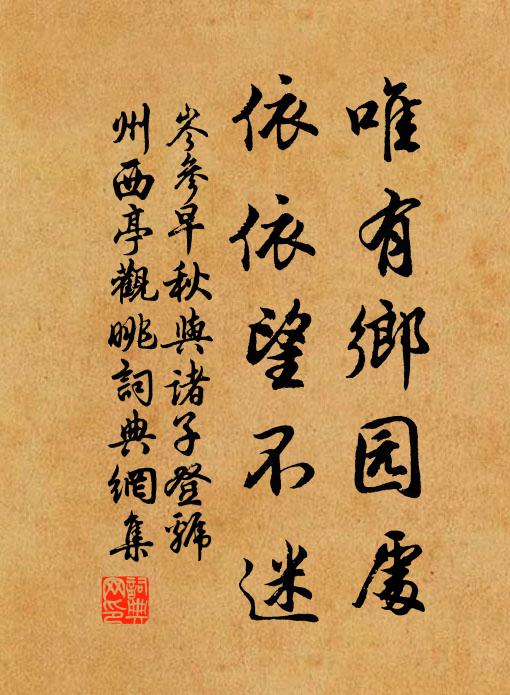 唯有鄉园處
依依望不迷
岑參早秋與諸子登虢
州西亭觀眺詞典網集
詞典
网印